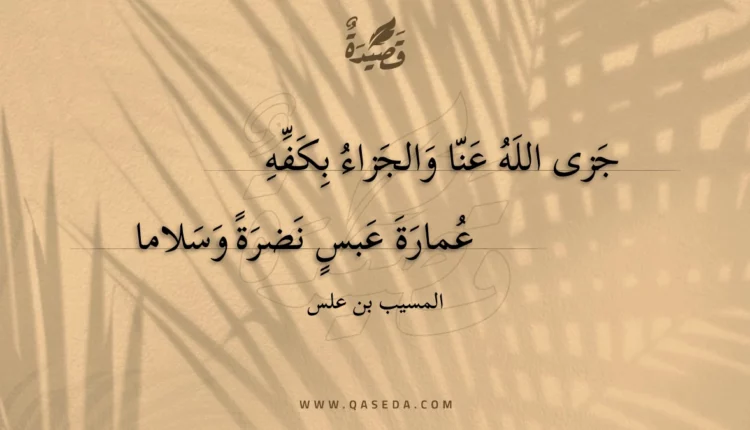 قَصِيْدَةٌ
جَزى اللَهُ عَنّا وَالجَزاءُ بِكَفِّهِ
عُمارَةَ عَبسٍ نَضرَةً وَسَلاما
المسيب بن علس
WWW.QASEDA.COM